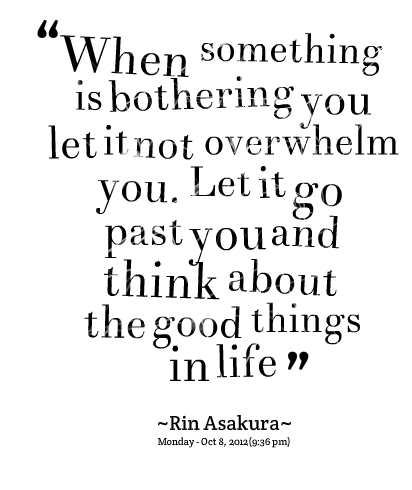 “When something
is bothering you
let it not overwhelm
you. Let it go
past you and
think about
the good things
in life”
~Rin Asakura~
Monday - Oct 8, 2012(9:36 pm)